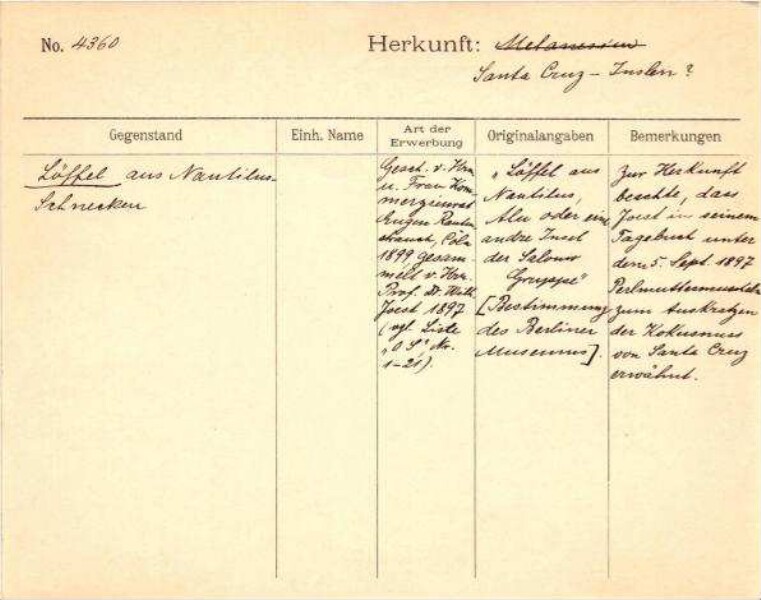 No. 4360
Herkunft: Melanesien
Santa Cruz - Inslen?
Gegenstand
Einh. Name
Art der Erwerbung
Originalangaben
Bemerkungen
Löffel aus Nautilus-
Schnecken
Gesch. v. Hrn.
u. Frau Kom-
merzienrat
Eugen Rauten-
strauch, Cöln
1899 gesam-
melt v. Hrn.
Prof. Dr. Wilh.
Joest 1897
(vgl. Liste
"O S", Nr.
1-21).
"Löffel aus
Nautilus,
Alu oder eine
andre Insel
der Salomo
Gruppe"
[Bestimmung
des Berliner
Museums].
Zur Herkunft
beachte, dass
Joest in seinem
Tagebuch unter
dem 5. Sept. 1897
zum Auskratzen
der Kokusnuss
von Santa Cruz
erwähnt.